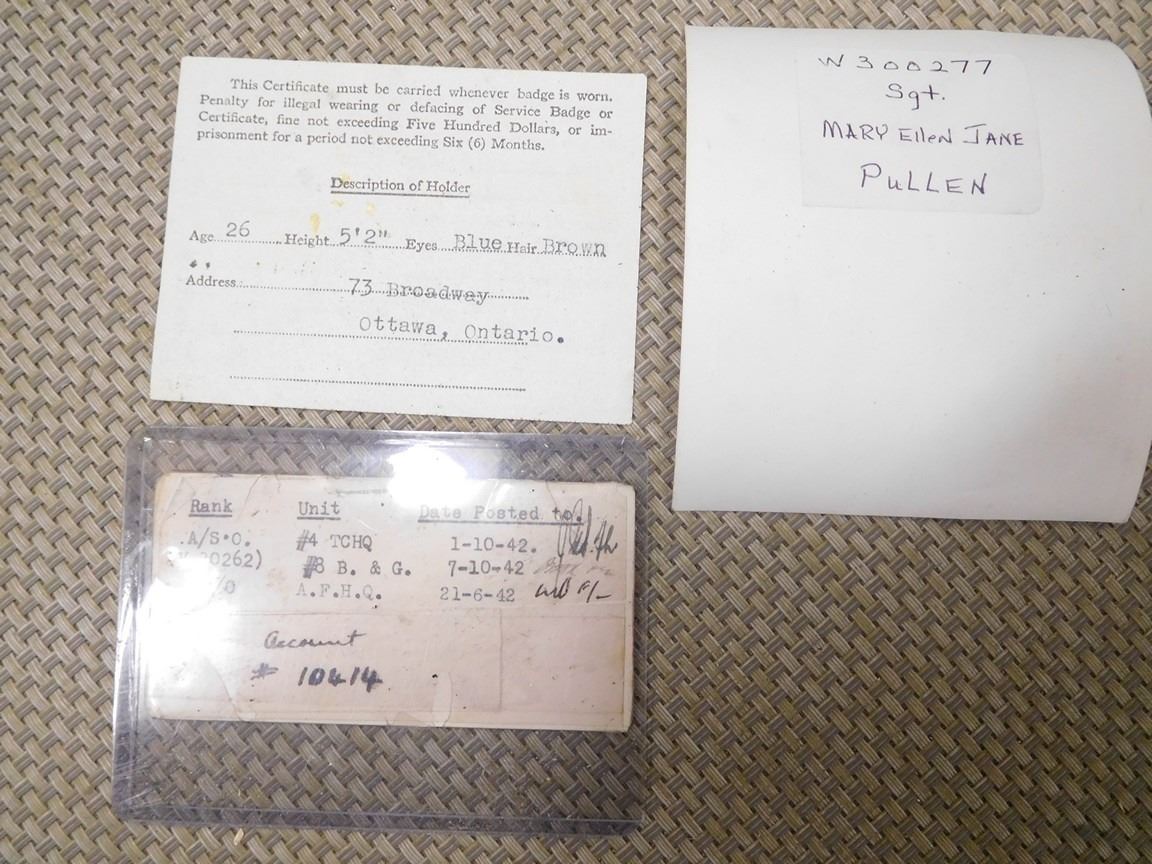 This Certificate must be carried whenever badge is worn.
Penalty for illegal wearing or defacing of Service Badge or
Certificate, fine not exceeding Five Hundred Dollars, or im-
prisonment for a period not exceeding Six (6) Months.
Description of Holder
Age 26 Height 5'2" Eyes Blue Hair Brown
Address 73 Broadway
Ottawa, Ontario.
W300277
Sgt.
MARY EllEN JANE
PULLEN
Rank Unit Date Posted to.
A/S.O. #4 TCHQ 1-10-42.
0262) #8 B. & G. 7-10-42
A.F.H.Q. 21-6-42
Account
# 10414